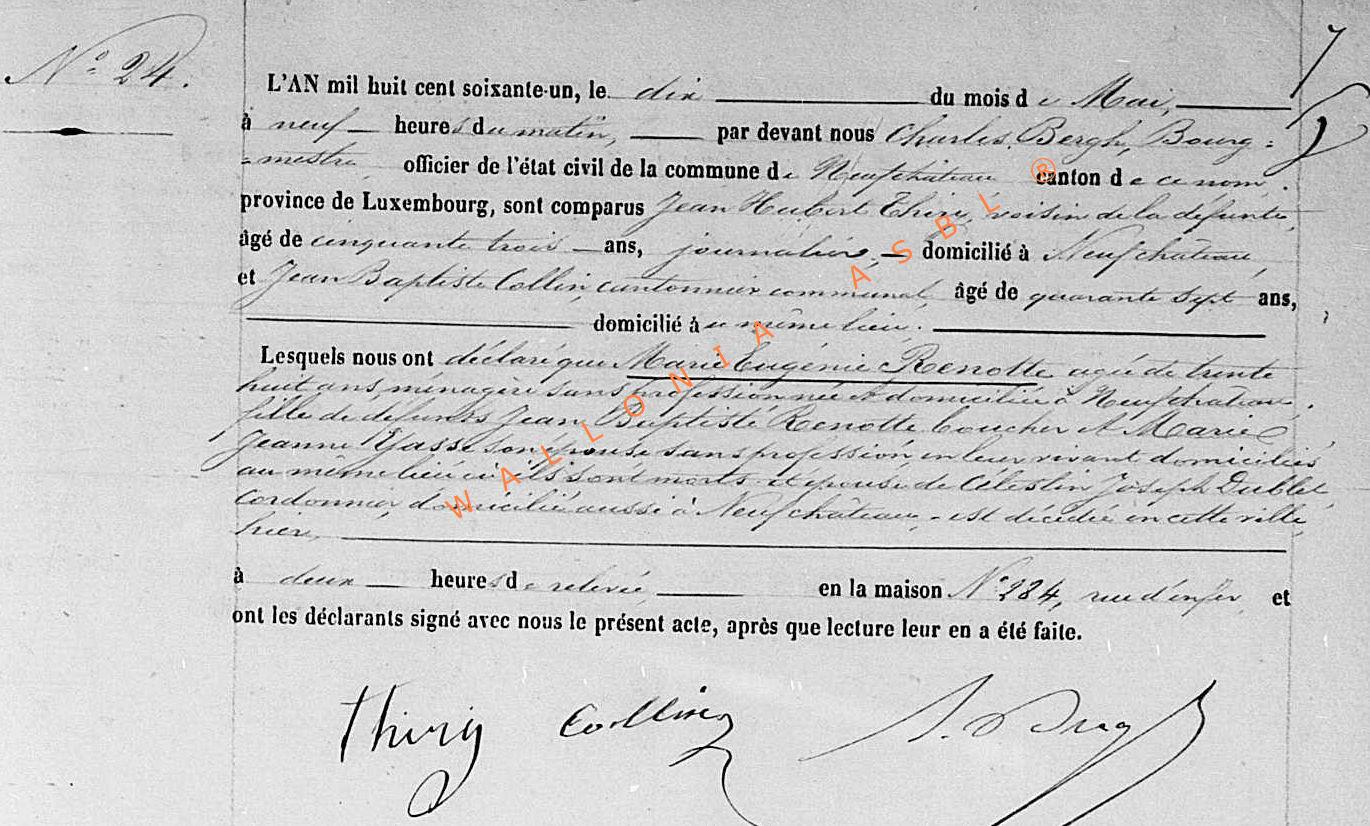 N° 24.
L'AN mil huit cent soixante-un, le dix du mois de Mai,
à neuf heures du matin, par devant nous Charles Bergh, Bourg=
=mestre officier de l'état civil de la commune de Neufchâteau canton de ce nom.
province de Luxembourg, sont comparus Jean Hubert Thiry, voisin de la défunte,
âgé de cinquante trois ans, journalier, domicilié à Neufchâteau,
et Jean Baptiste Collin, cantonnier communal, âgé de quarante sept ans,
domicilié au même lieu.
Lesquels nous ont déclaré que Marie Eugénie Renotte agée de trente
huit ans ménagère sans profession née et domiciliée à Neufchâteau,
fille de defunts Jean Baptiste Renotte et Marie
Jeanne son épouse sans profession en leur vivant domiciliés
au même lieu où ils sont morts et épouse de Célestin Joseph Dublet
cordonnier domicilié aussi à Neufchâteau, est décédée en cette ville
hier,
à deux heures de relevée, en la maison N° 284, rue d'enfer et
ont les déclarants signé avec nous le présent acte, après que lecture leur en a été faite.
Thiry Collin
WALLONIA ASBL ®